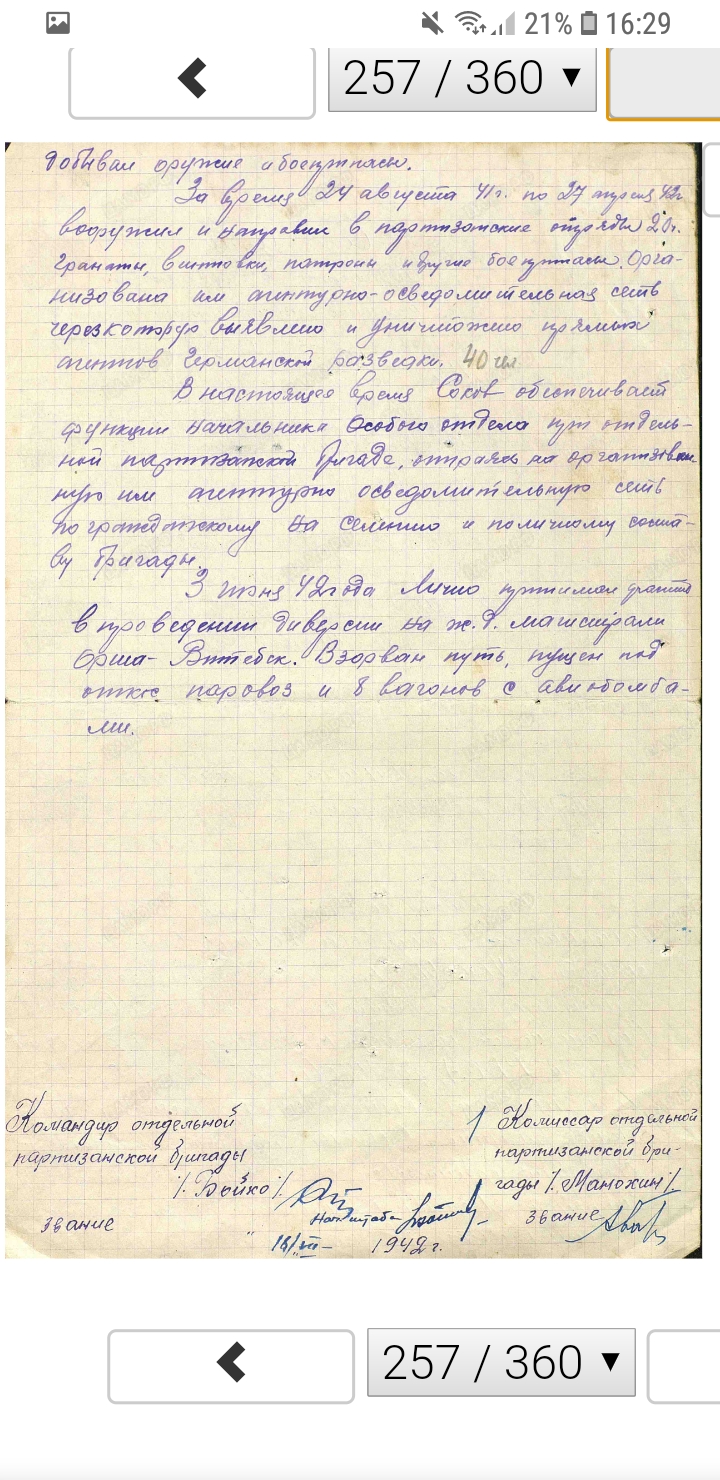 21% 16:29
257 / 360
добывал оружие и боеприпасы.
За время 24 августа 41г. по 27 апреля 42г
вооружил и направил в партизанские отряды 20г.
гранаты, винтовки, патроны и другие боеприпасы. Орга-
низована им агентурно-осведомительная сеть
через которую выявлено и уничтожено прямых
агентов Германской разведки. 40 чел
В настоящее время Соков обеспечивает
функции начальника Особого отдела при отдель-
ной партизанской бригаде, опираясь на организован-
ную им агентурно осведомительную сеть
по гражданскому населению и по личному соста-
ву бригады.
3 июня 42 года лично принимал участие
в проведении диверсии на ж.д. магистрали
Орша-Витебск. Взорван путь, пущен под
откос паровоз и 8 вагонов с авиобомба-
ми.
Командир отдельной
партизанской бригады
/. Бойко /.
звание
Комиссар отдельной
партизанской бри-
гады /. Манохин /.
звание
Нач штаба
1942 г.
257 / 360